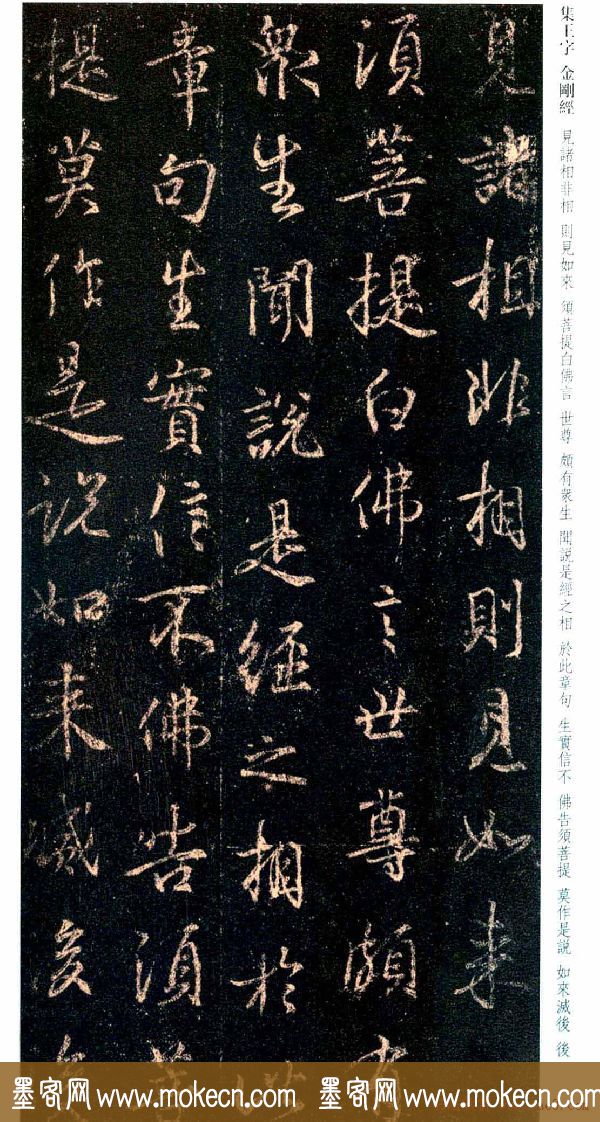 集王字 金剛經 見諸相非相 則見如來 須菩提白佛言 世尊 頗有衆生 聞說是經之相 於此章句 生實信不 佛告須菩提 莫作是說 如來滅後 後
見諸相非相則見如来
須菩提白佛言世尊頗有
衆生聞說是經之相於此
章句生實信不佛告須菩
提莫作是說如来滅後後
墨客网 www.mokecn.com 墨客网 www.mokecn.com